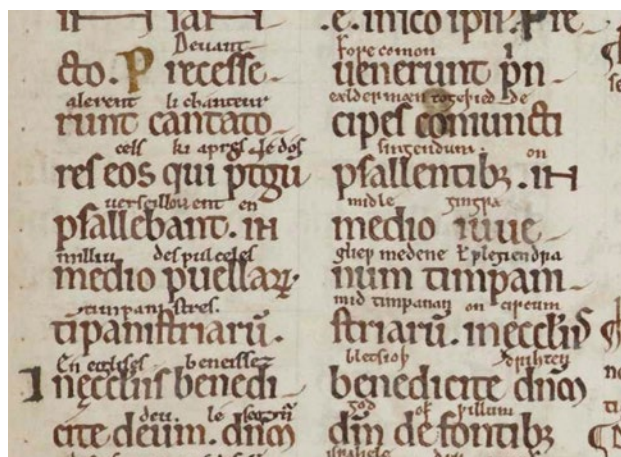 Deuant
cto. Precesse-
alerent li chanteur
runt cantato-
cels ki apres le dos
res eos qui ptgū
uerseillouent en
psallebant. in
milliu des pulceles
medio puellarꝝ
timpanistres.
tīpanistriarū.
En ecglises beneissez
Inęccliis benedi-
deu le segnur
cite deum. dnm
fore comon
uenerunt pn-
ealdermæn togeþied de
cipes coniuncti
singendum on
psallentibꝫ. in
midle gingra
medio iuue-
gliep medene ł plegiendra
num timpani-
mid timpanan on circum
striarū. ineccliis
bletsiaþ drihten
benedicite dnm
god of ƿillum
dm de fontibꝫ